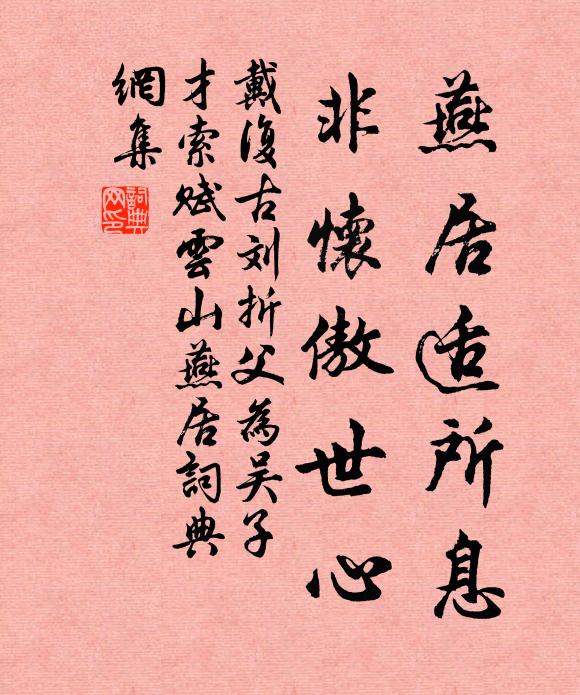 燕居适所息
非懷傲世心
戴復古刘折父為吴子
才索赋雲山燕居詞典
網集
詞典
网印